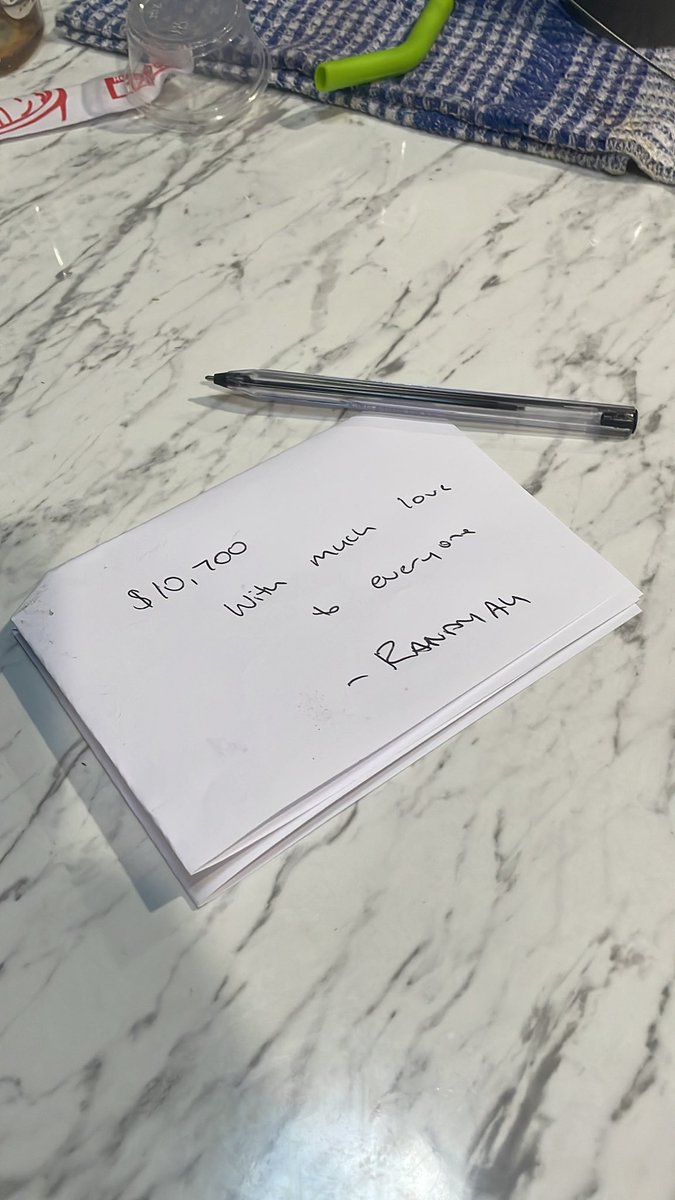 $10,700
With much love
to everyone
- RANDYAH